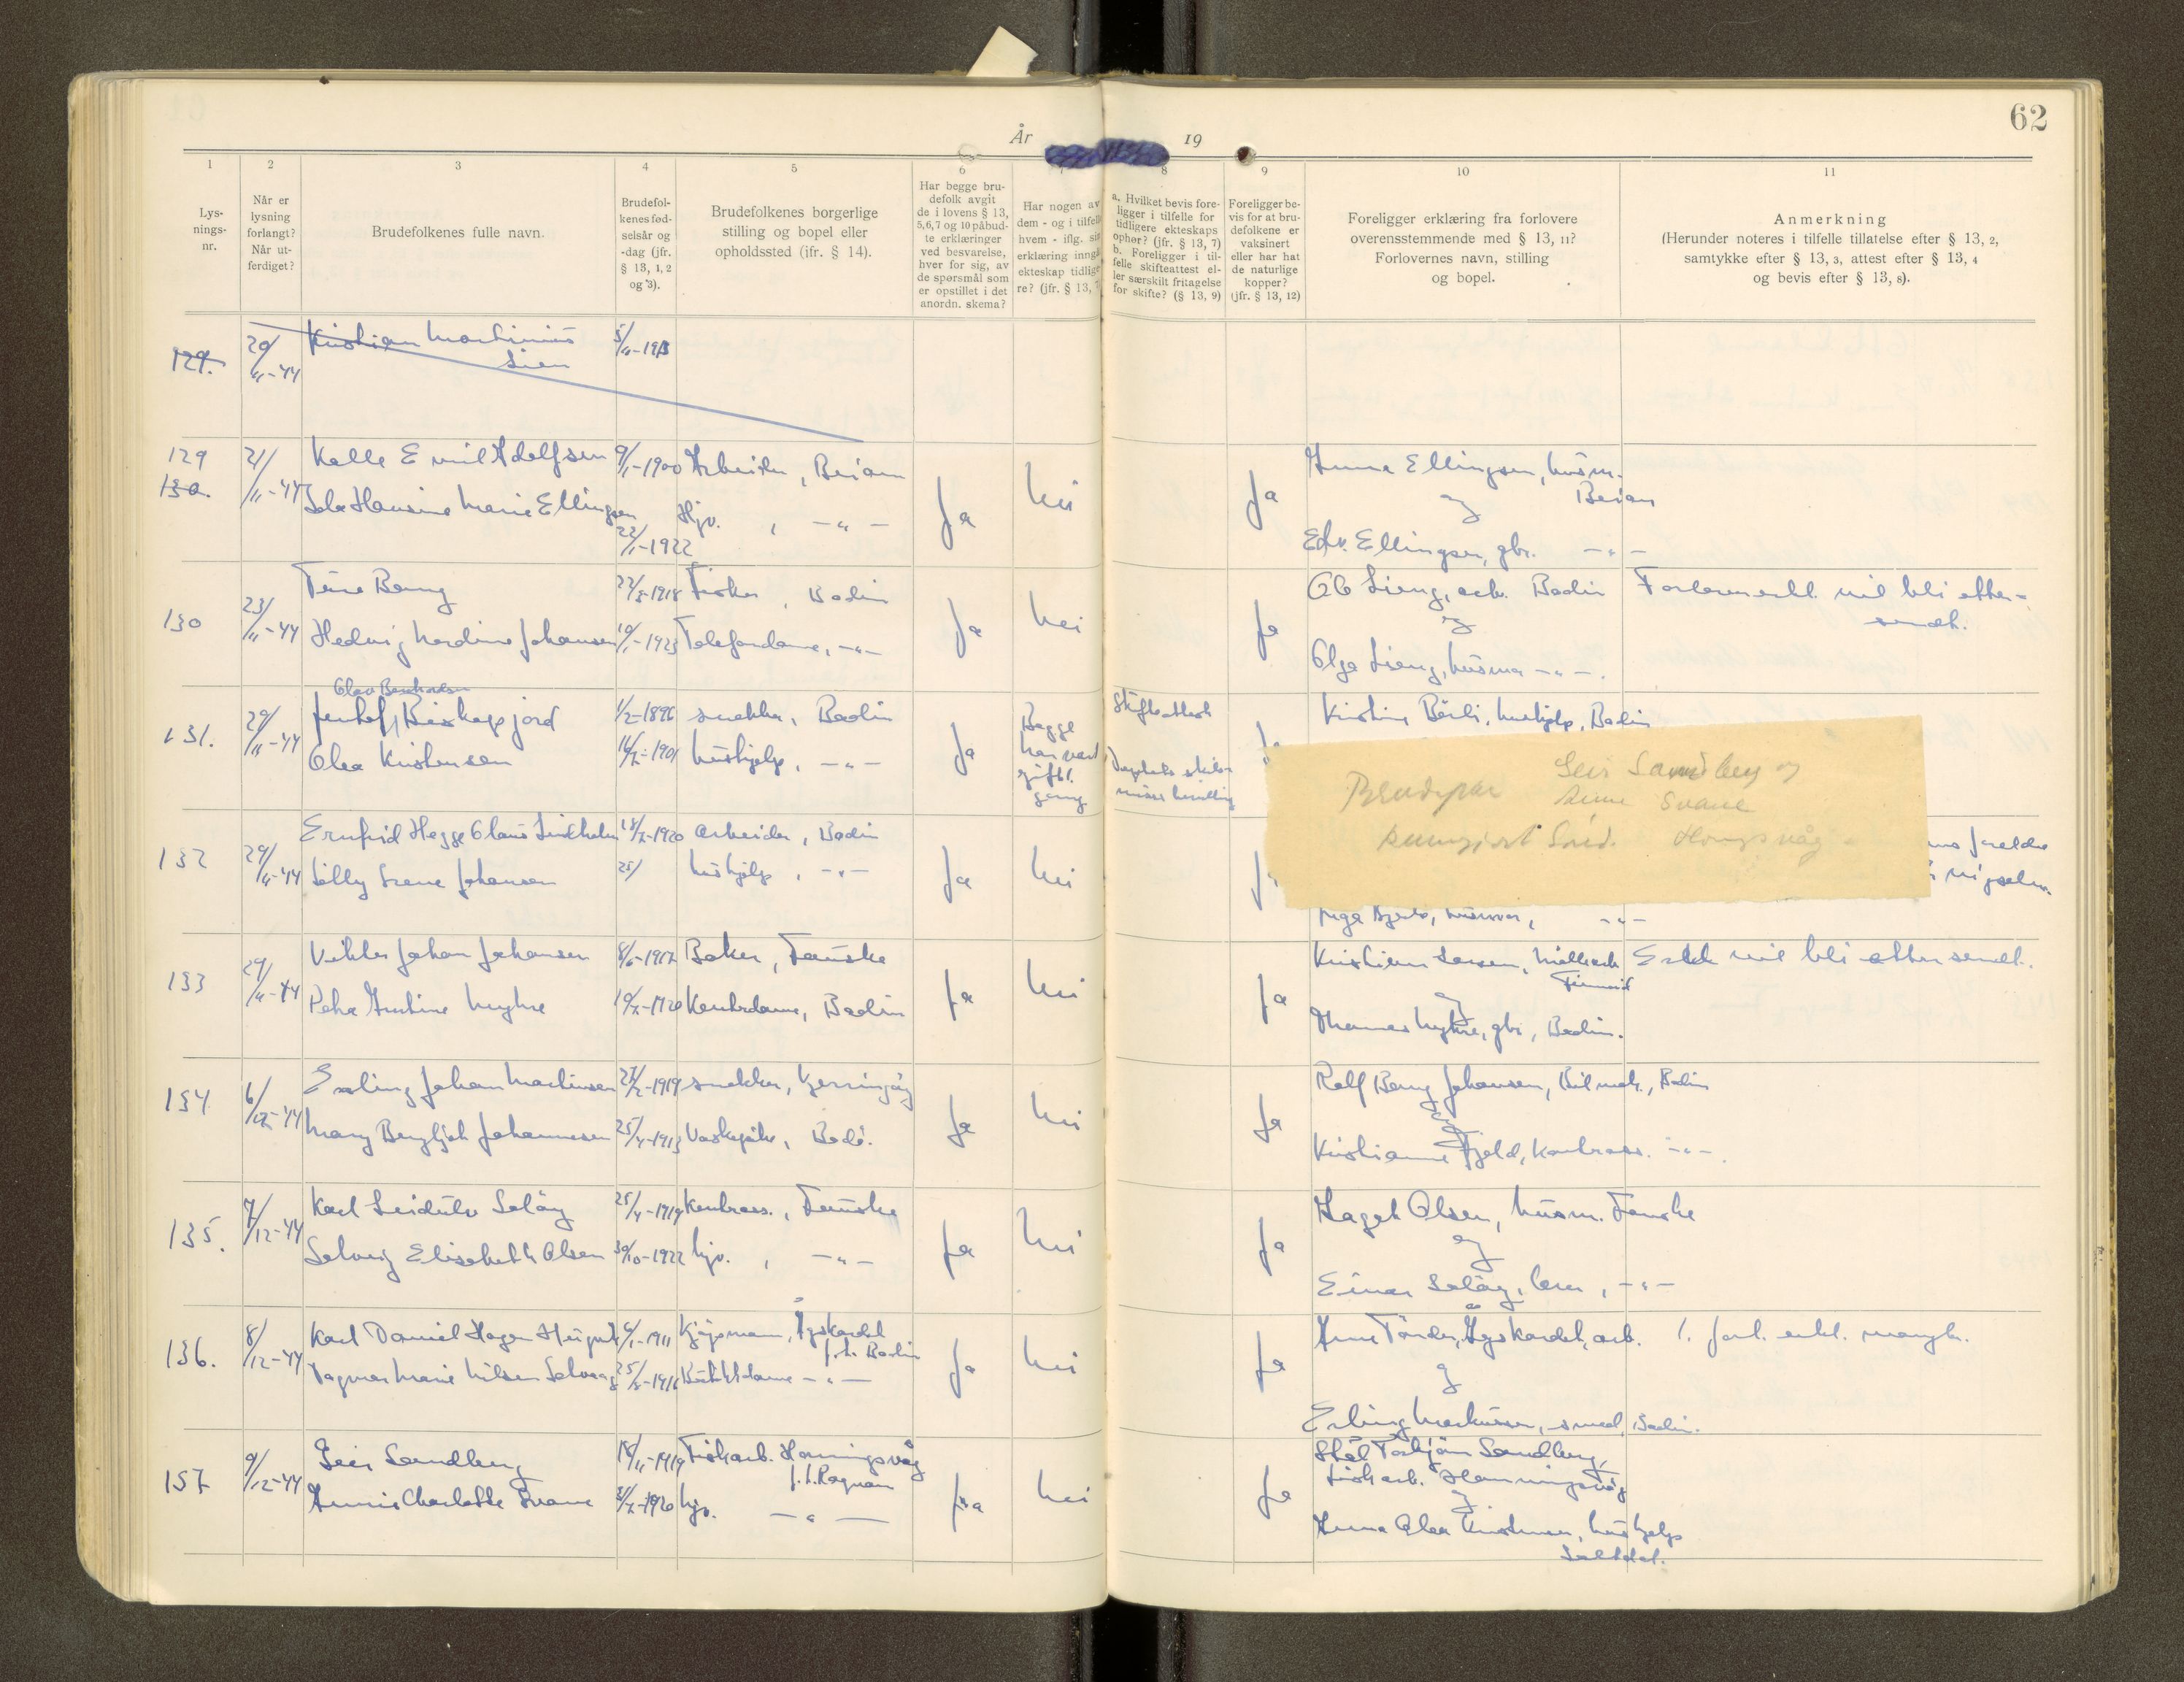 62
År 19
1 2 3 4 5 6 8 9 10 11
Lys-
nings-
nr.
Når er
lysning
forlangt?
Når ut-
ferdiget?
Brudefolkenes fulle navn.
Brudefol-
kenes fød-
selsår og
-dag (jfr.
§ 13, 1, 2
og 3).
Brudefolkenes borgerlige
stilling og bopel eller
opholdssted (ifr. § 14).
Har begge bru-
defolk avgit
de i lovens § 13,
5,6,7 og 10 påbud-
te erklæringer
ved besvarelse,
hver for sig, av
de spørsmål som
er opstillet i det
anordn. skema?
Har nogen av
dem - og i tilfelle
hvem - iflg. sin
erklæring inngå
ekteskap tidlige
re? (jfr. § 13, 7
a. Hvilket bevis fore-
ligger i tilfelle for
tidligere ekteskaps
ophør? (jfr. § 13, 7)
b. Foreligger i til-
felle skifteattest el-
ler særskilt fritagelse
for skifte? (§ 13, 9)
Foreligger be-
vis for at bru-
defolkene er
vaksinert
eller har hat
de naturlige
kopper?
(jfr. § 13, 12)
Foreligger erklæring fra forlovere
overensstemmende med § 13, 11?
Forlovernes navn, stilling
og bopel.
Anmerkning
(Herunder noteres i tilfelle tillatelse efter § 13, 2,
samtykke efter § 13, 3, attest efter § 13, 4
og bevis efter § 13, 8).
129. 20/11-44 Kristian Martinius 5/11-1913
Lien
129 21/11-44 Kalle Emil Adolfsen 9/1-1900 Arbeider, Beiarn Ja Nei Ja Anna Ellingsen, husm.
130. Hansine Marie Ellingsen 22/1-1922 Hjv. , -"- og Beiarn
Edv. Ellingsen, gbr. -"-
130 23/11-44 Berg 22/3-1918 Fisker, Bodin Ja Nei Ja Lieng, arb. Bodin Forlovererkl. vil bli etter-
Hedvig Nordine Johansen 10/1-1923 Telefondame, -"- og sendt.
Olga Lieng, husmor -"-.
131. 29/11-44 Olav Bernhardsen
Jentoft Biskopsjord 1/2-1896 snekker, Bodin Ja Begge Skifteattest Kristine hushjelp, Bodin
Olea Kristensen 16/2-1901 hushjelp, -"- har vært
gift 1.
gang bevilling
Brudepar Geir Sandberg og
Anne Svane
kunngjort Honningsvåg
132 29/11-44 Hegge Olaus Lindholm 18/2-1920 arbeider, Bodin Ja Nei foreldre
Lilly Johansen 25/ hushjelp, -"- vigselen.
Inga husmor, -"-
133 29/11-44 Viktor Johan Johansen 8/6-1917 Baker, Fauske Ja Nei Ja Kristian Larsen, Erkl. vil bli etter sendt.
Petra Justine Myhre 10/2-1920 Kontordame, Bodin og
Thomas Myhre, gbr, Bodin.
134 6/12-44 Erling Johan Martinsen 27/2-1919 snekker, Kjerringøy Ja Nei Ja Rolf Berg Johansen, Bilmek., Bodin
Mary Bergljot Johannesen 25/4-1913 Vaskepike, Bodø. og
Kristianne Fjeld, Kontorass. -"-.
135. 7/12-44 Karl Leidulv Seløy 25/4-1919 Kontorass., Fauske Ja Nei Ja Hagel Olsen, husm. Fauske
Solveig Elisabeth Olsen 30/10-1922 hjv. , -"- og
Einar Seløy, lærer, -"-
136. 8/12-44 Karl Daniel Hagen 6/1-1911 Kjøpmann, Øyskardet Ja Nei Ja Arne Øyskardet, arb. 1. forl. erkl. mangler.
f.t. Bodin
Dagmar Marie Nilsen Solvaag 25/8-1916 Butikkdame -"- og
Erling Markussen, smed, Bodin.
137 9/12-44 Geir Sandberg 18/11-1919 Fiskarb. Honningsvåg Ja Nei Ja Torbjørn Sandberg,
f.t. Rognan fiskarb. Honningsvåg
Annie Charlotte Svane 3/2-1920 hjv. -"- og
Anna Olea hushjelp
Saltdal.